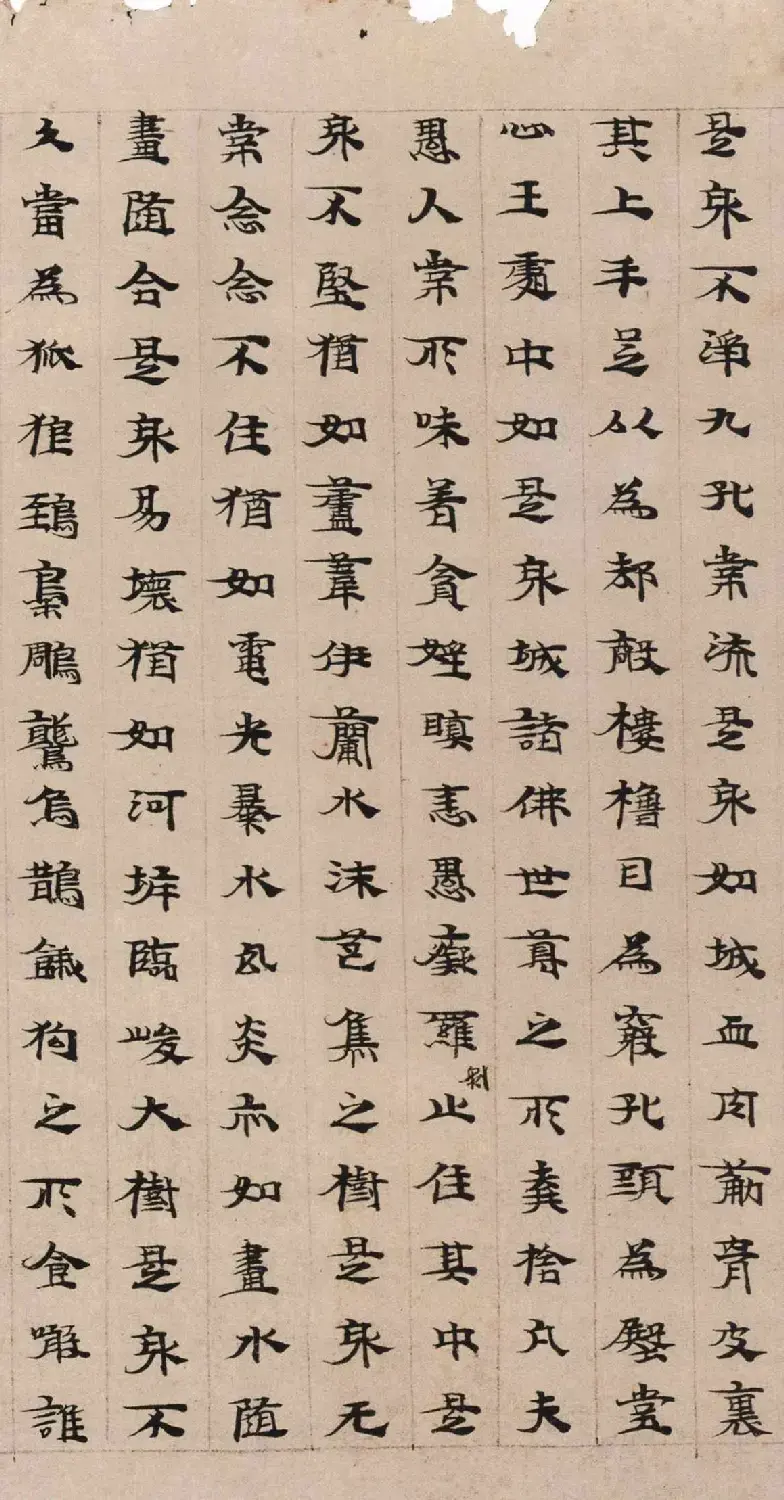 是身不淨九孔常流是身如城血肉筋骨皮裹
其上手足以為却敵樓櫓目為竅孔頭為殿堂
心王處中如是身城諸佛世尊之所棄捨凡夫
愚人常所味著貪婬瞋恚愚癡羅剎止住其中是
身不堅猶如蘆葦伊蘭水沫芭焦之樹是身无
常念念不住猶如電光暴水幻炎亦如畫水隨
畫隨合是身易壞猶如河岸臨峻大樹是身不
久當為狐狼鵄梟鵰鷲烏鵲餓狗之所食噉誰